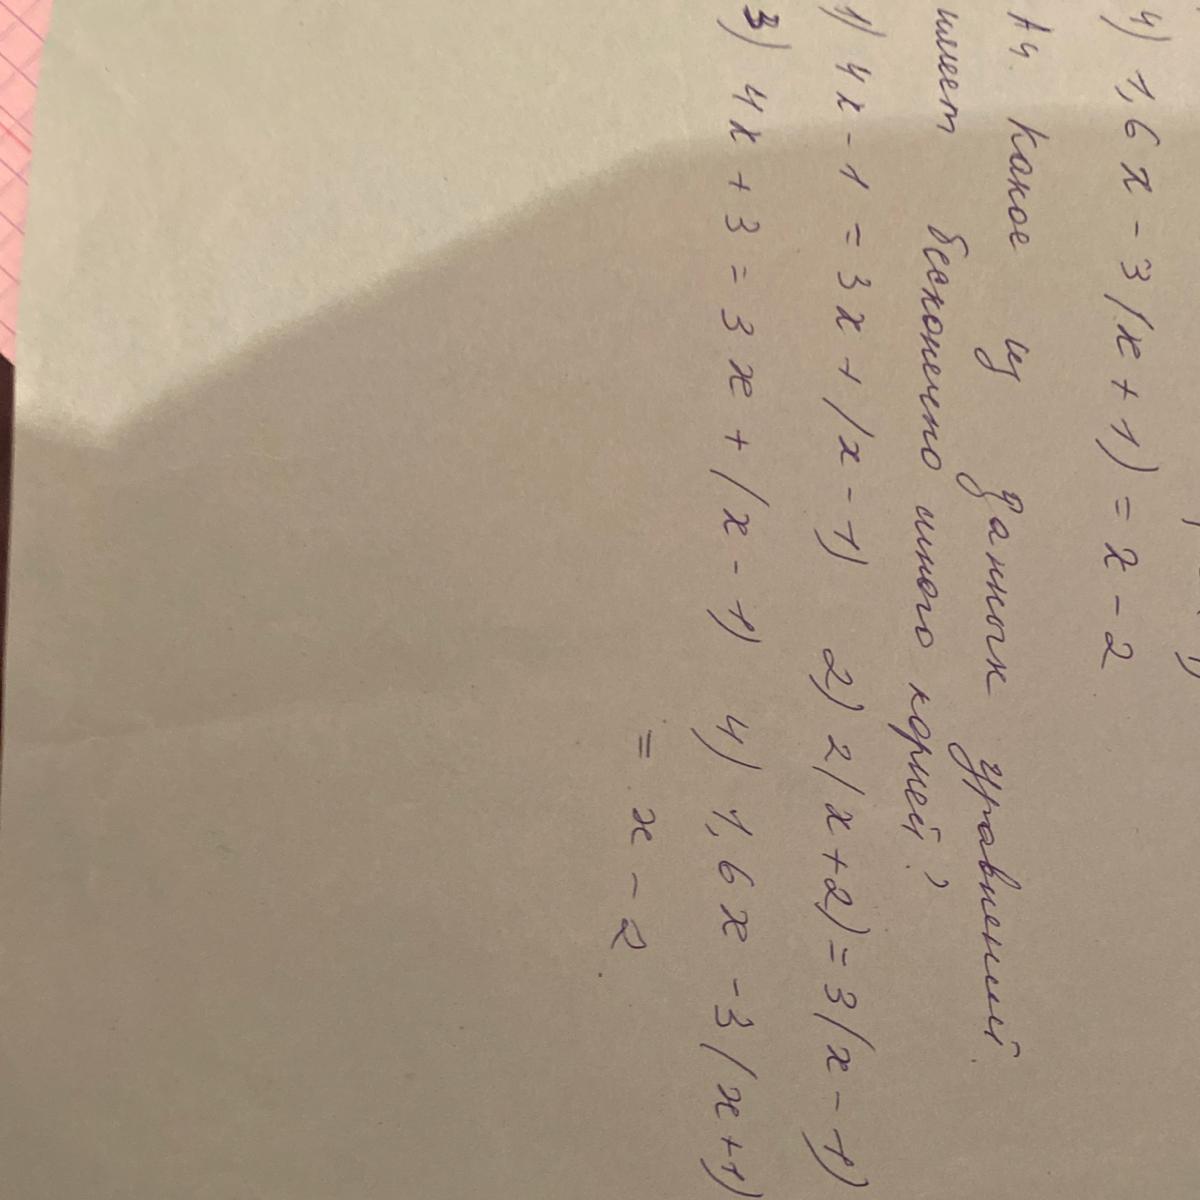 4) 1,6x - 3(x + 1) = x - 2
А4. Какое из данных уравнений
имеет бесконечно много корней?
1) 4x - 1 = 3x + (x - 1) 2) 2(x + 2) = 3(x - 1)
3) 4x + 3 = 3x + (x - 1) 4) 1,6x - 3(x + 1)
= x - 2